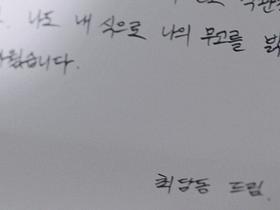 나도 내 식으로 나의 무고를 밝
습니다.
최담동 드림.